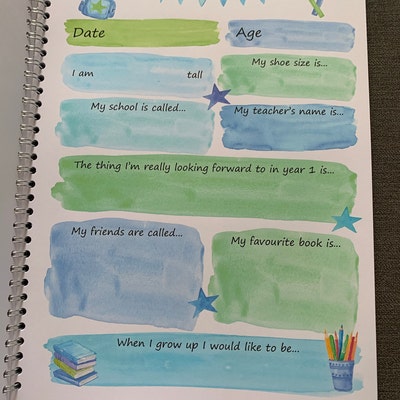 Date
Age
I am tall
My shoe size is...
My school is called...
My teacher's name is...
The thing I'm really looking forward to in year 1 is...
My friends are called...
My favourite book is...
When I grow up I would like to be...